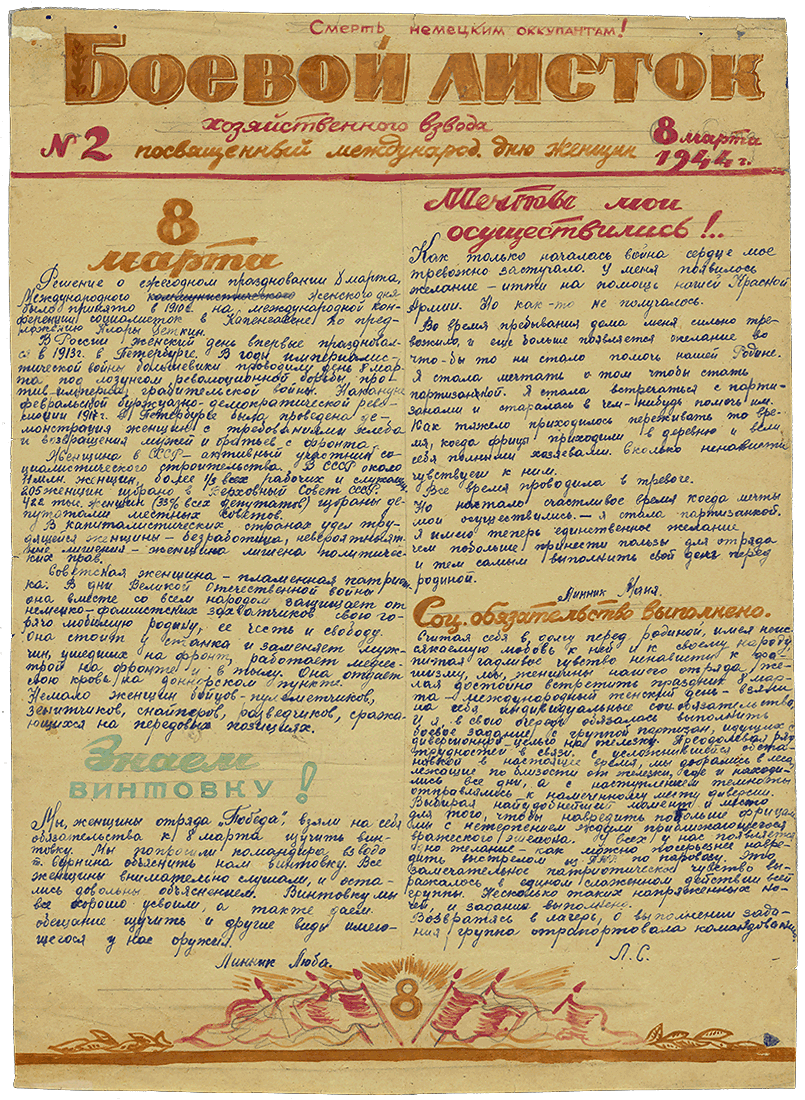 Смерть немецким оккупантам!
Боевой листок
хозяйственного взвода
№2 посвященный международ. дню женщин 8 марта
1944 г.
8
марта
Решение о ежегодном праздновании 8 марта,
Международного коммунистического женского дня
было принято в 1910 г. на международной кон-
ференции социалисток в Копенгагене по пред-
ложению Клары Цеткин.
В России женский день впервые праздновал-
ся в 1913 г. в Петербурге. В годы империалис-
тической войны большевики проводили день 8 мар-
та под лозунгом революционной борьбы про-
тив империал. грабительской войны. Накануне
февральской буржуазно-демократической рево-
люции 1917 г. в Петербурге была проведена де-
монстрация женщин с требованиями хлеба
и возвращения мужей и братьев с фронта.
Женщина в СССР – активный участник со-
циалистического строительства. В СССР около
11 млн. женщин, более 1/3 всех рабочих и служащ.
205 женщин избрано в Верховный Совет СССР.
422 тыс. женщин (33% всех депутатов) избраны де-
путатами местных советов.
В капиталистических странах удел тру-
дящейся женщины – безработица, невероятный
лишения – женщина лишена политичес-
ких прав.
Советская женщина – пламенная патриот-
ка. В дни Великой Отечественной войны
она вместе со всем народом защищает от
немецко-фашистских захватчиков свою го-
рячо любимую родину, ее честь и свободу.
Она стоит у станка и заменяет муж-
чин, ушедших на фронт, работает медсес-
трой на фронте и в тылу. Она отдает
свою кровь на донорском пункте.
Немало женщин бойцов-пулеметчиков,
зенитчиков, снайперов, разведчиков, сража-
ющихся на передовых позициях.
Знаем
винтовку!
Мы, женщины отряда "Победа", взяли на себя
обязательства к 8 марта изучить вин-
товку. Мы попросили командира взвода
т. Бурнина объяснить нам винтовку. Все
женщины внимательно слушали, и оста-
лись довольны объяснением. Винтовку мы
все хорошо усвоили, а также даем
обещание изучить и другие виды имею-
щегося у нас оружия.
Минник Люба.
Мечты мои
осуществились!..
Как только началась война сердце мое
тревожно застучало. У меня появилось
желание – итти на помощь нашей Красной
Армии. Но как-то не получалось.
Во время пребывания дома меня сильно тре-
вожило, и еще больше появляется желание во
что-бы то ни стало помочь нашей Родине.
Я стала мечтать о том чтобы стать
партизанкой. Я стала встречаться с парти-
занами и старалась в чем-нибудь помочь им.
Как тяжело приходилось переживать то вре-
мя, когда фрицы приходили в деревню и вели
себя полными хозяевами. Сколько ненависти
чувствуем к ним.
Все время проводила в тревоге.
Но настало счастливое время когда мечты
мои осуществились – я стала партизанкой.
Я имею теперь единственное желание
чем побольше принести пользы для отряда
и тем самым выполнить свой долг перед
родиной.
Минник Маня.
Соц. обязательство выполнено.
Считая себя в долгу перед родиной, имея неис-
сякаемую любовь к ней и к своему народу
питая гадливое чувство ненависти к фа-
шизму, мы, женщины нашего отряда, же-
лая достойно встретить праздник 8 мар-
та – международный женский день – взяли
на себя индивидуальные соц. обязательства,
и я, в свою очередь обязалась выполнить
боевое задание с группой партизан, идущих с
диверсионной целью на железку. Преодолевая ряд
трудностей в связи с усложнившейся обста-
новкой в настоящее время, мы добрались в леса,
лежащие по близости от железки, где и находи-
лись все дни, а с наступлением темноты
отправлялись к намеченному месту диверсии.
Выбирая найудобнейший момент и место
для того, чтобы навредить побольше фрицам
мы с нетерпением ждали приближающегося
вражеского эшелона. У всех у нас появляется
одно желание – как можно посерьезнее навре-
дить выстрелом из ПТР по паровозу. Это
замечательное патриотическое чувство вы-
ражалось в едином слаженном действии всей
группы. Несколько таких напряженных но-
чей, и задание выполнено.
Возвратясь в лагерь, о выполнении зада-
ния группа отрапортовала командованию.
Л. С.
8